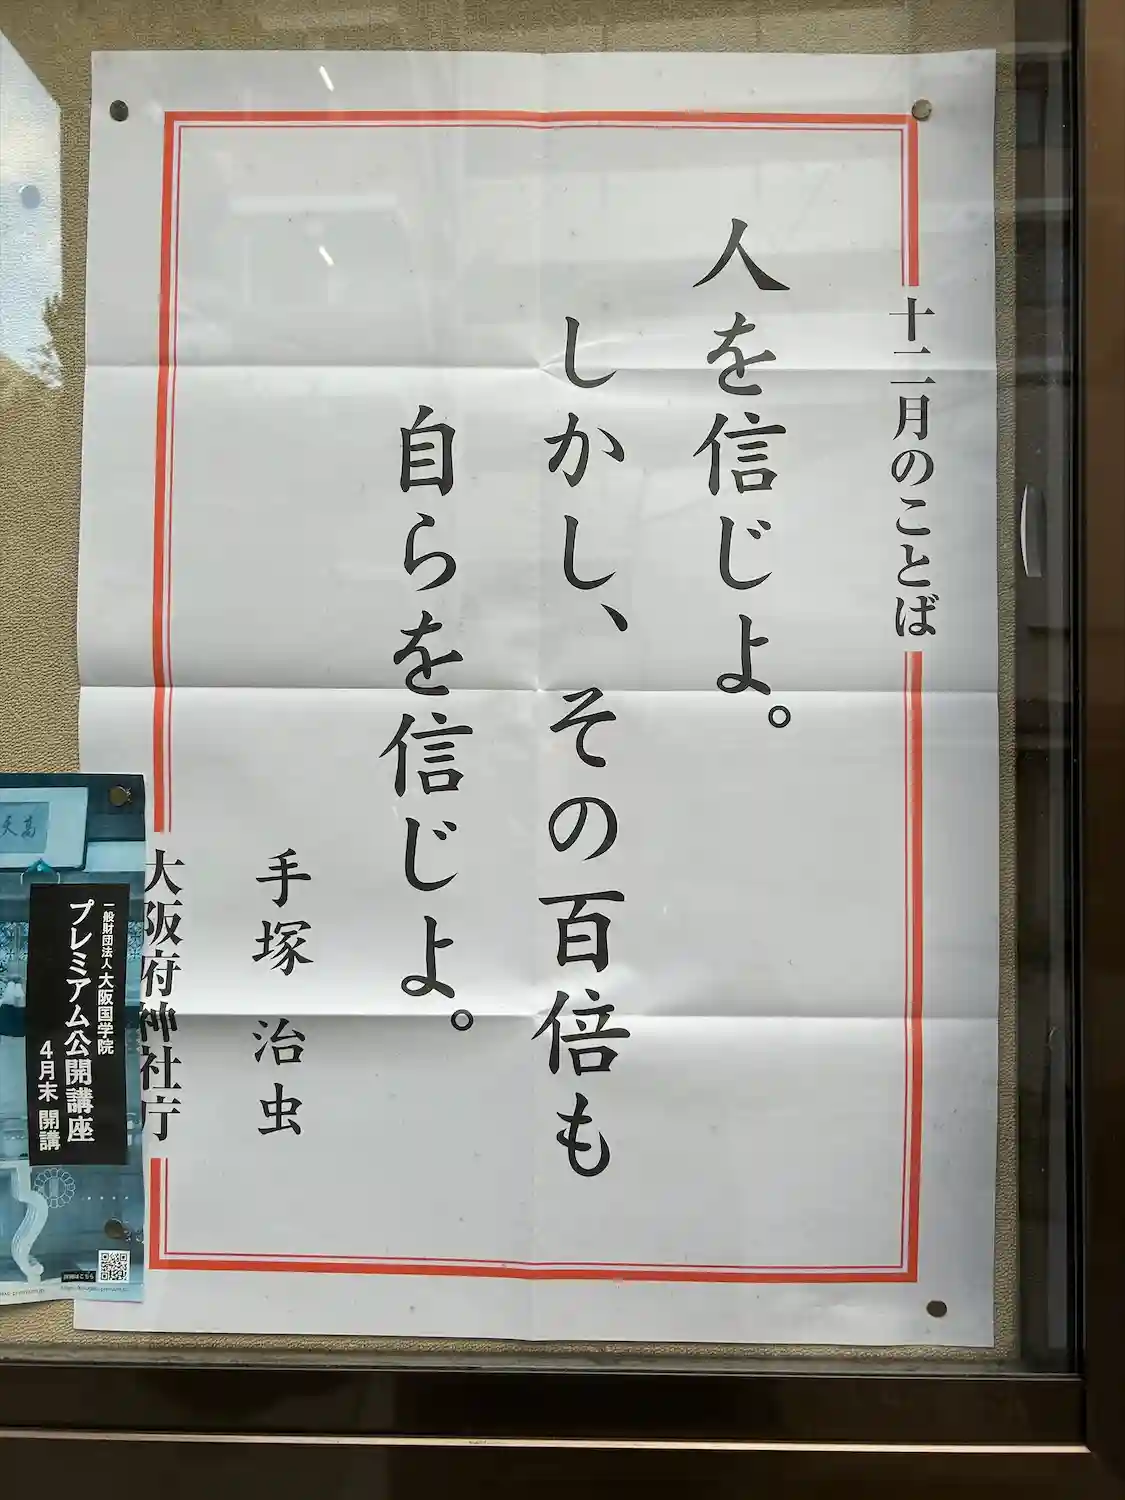 十二月のことば
人を信じよ。
しかし、その百倍も
自らを信じよ。
手塚 治虫
大阪府神社庁
一般財団法人 大阪国学院
プレミアム公開講座
4月末 開講
詳細はこちら